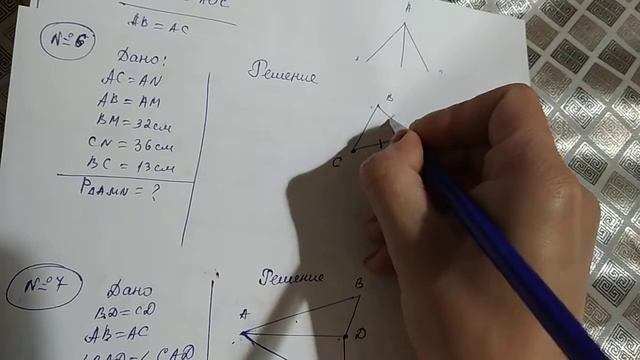 AB = AC
№6
Дано:
AC = AN
AB = AM
BM = 32 см
CN = 36 см
BC = 13 см
P△AMN = ?
Решение
A
B
C
№7
Дано
BD = CD
AB = AC
Решение
A
B
D